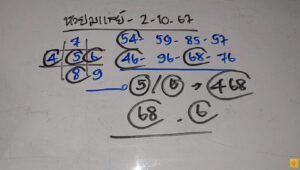 หวยมแพย์ - 2-10-67
7
4 5 6
8 9
54 - 59 - 85 - 57
46 - 96 - 68 - 76
5/6 → 468
68 . 6